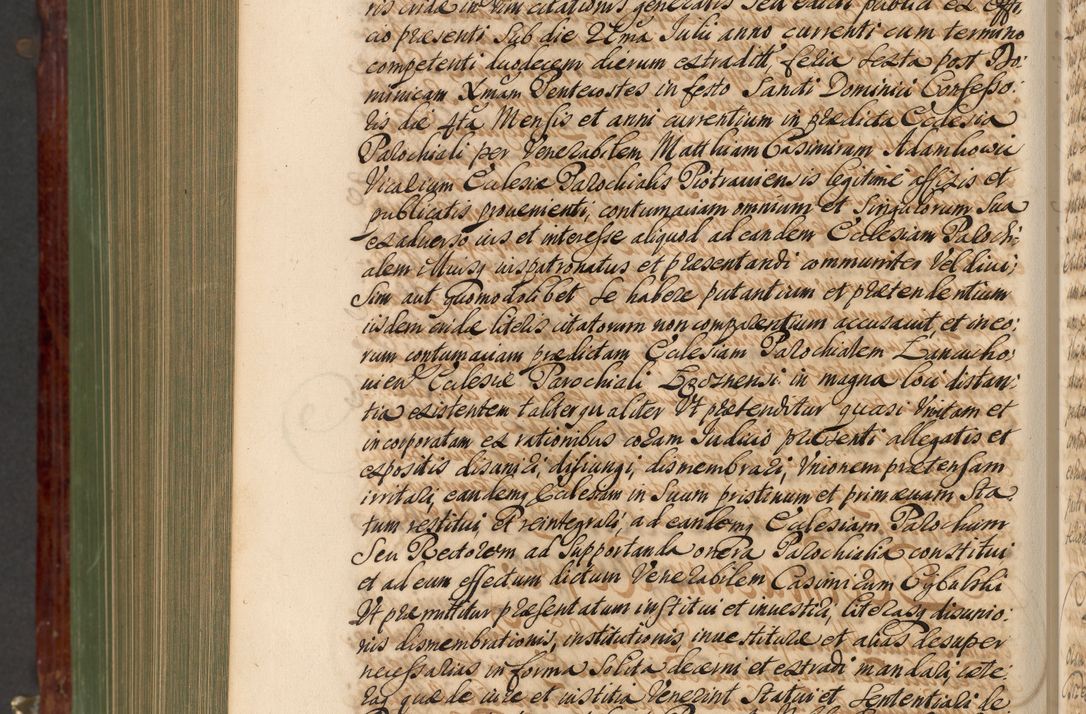 ris eiusdem in vim citationis generalis seu edicti publici ex offi:
cio præsenti sub die 22ma Julii anno currenti cum termino
competenti duodecem dierum extraditt, feria sexta post Do:
minicam Xmam Pentecostes in festo Sancti Dominici Confesso:
ris die 4ta Mensis et anni currentium in prædicta Ecclesia
Parochiali per Venerabilem Matthiam Casimirum Adamkowic
Vicarium Ecclesiæ Parochialis Piotraviensis legitime affixis et
publicatis provenienti, contumaciam omnium et singulorum sua
ex adverso ius et interesse aliquod ad eandem Ecclesiam Parochi:
alem illiusq iuspatronatus et præsentandi communiter vel divi:
sim aut quomodolibet se habere putantium et prætendentium
iisdem eiusdæ literis citatorum non comparentium accusavit, et in eo:
rum contumaciam prædictam Ecclesiam Parochialem Lancucho:
vien Ecclesiæ Parochiali Egoznensi in magna loci distan:
tia existentem taliter qualiter Ut prætenditur quasi Unitam et
incorporatam ex rationibus coram Iudicio præsenti allegatis et
expositis disuniri, disiungi, dismembrari, Unionem prætensam
irritari, eandemq Ecclesiam in suum pristinum et primævum sta:
tum restitui et reintegrari, ad eandemq Ecclesiam Parochum
seu Rectorem ad supportanda onera Parochialia constitui
et ad eum effectum dictum Venerabilem Casimirum Cybulski
Ut præmittitur præsentatum institui et investiri, literasq disunio:
nis dismembrationis, institutionis, investituræ et alias desuper
necessarias in forma solita decerni et extradi mandari, cæte:
raq quæ de iure et iustitia Venerint Statui et Sententiari de